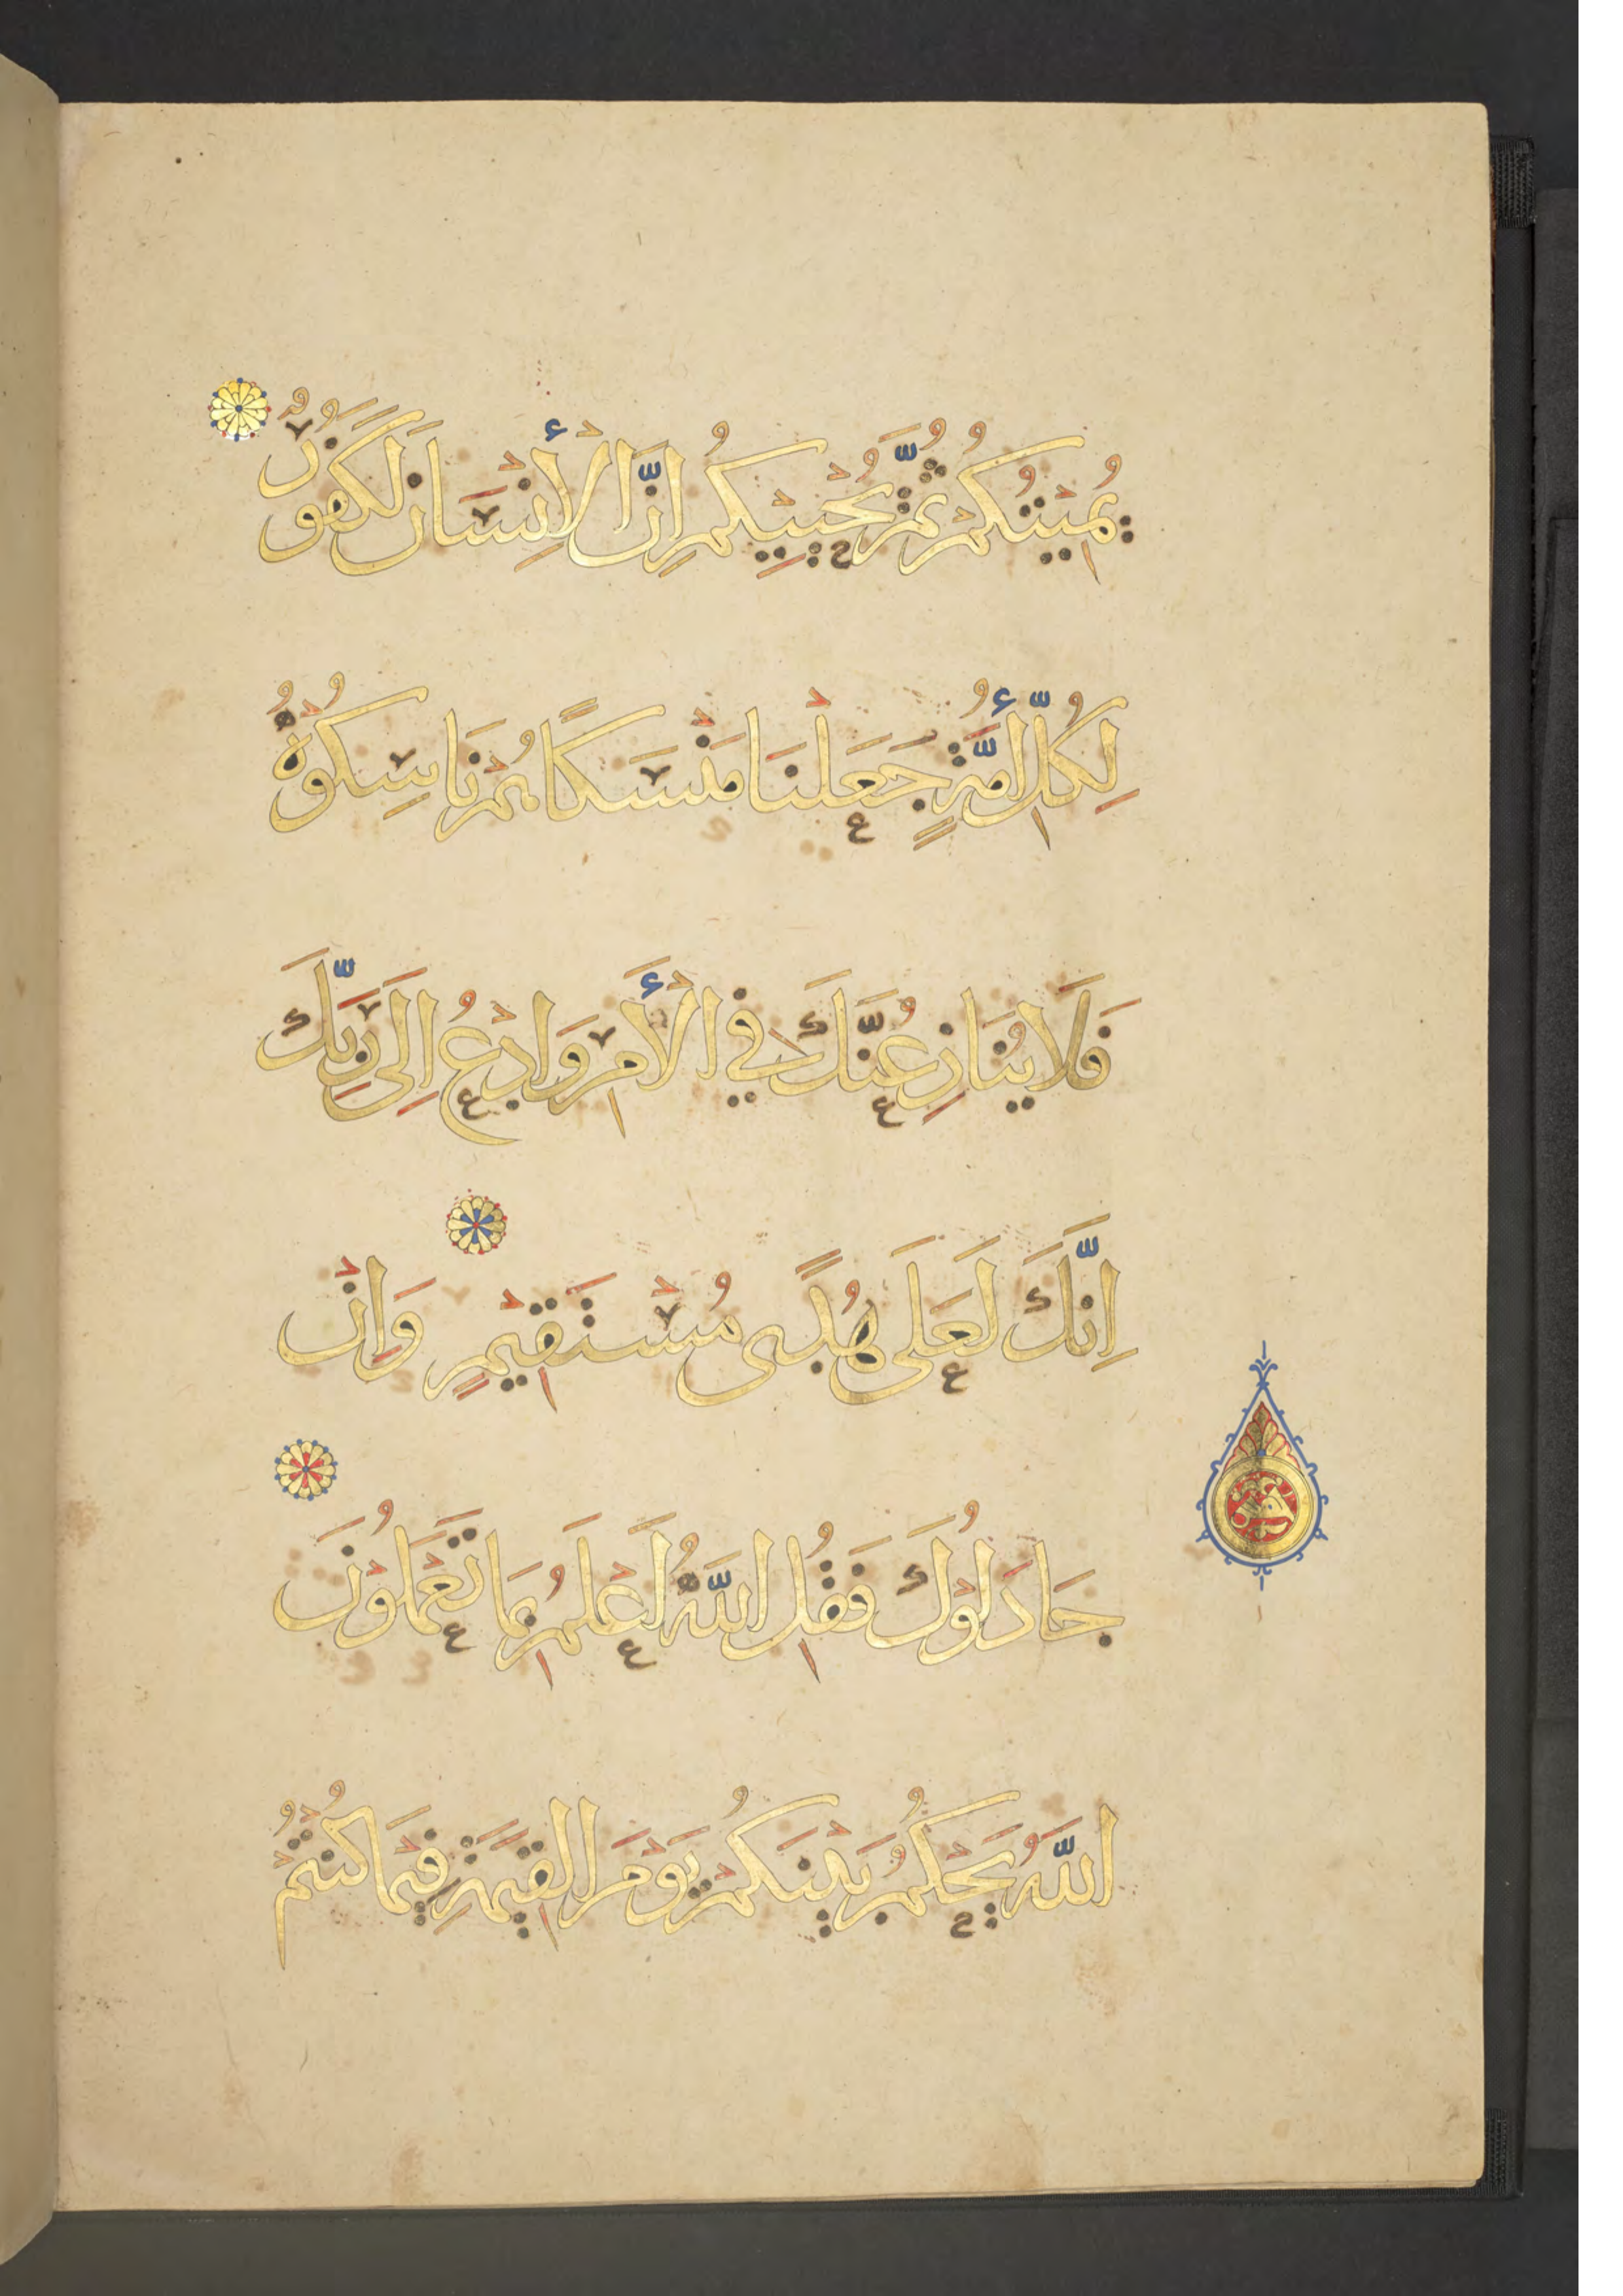 يُمِيتُكُمْ ثُمَّ يُحْيِيكُمْ اِنَّ الْأِنْسَانَ لَكَفُوْرٌ
لِكُلِّ أُمَّةٍ جَعَلْنَا مَنْسَكًا هُمْ نَاسِكُوْهُ
فَلَا يُنَازِعُنَّكَ فِي الْأَمْرِ وَادْعُ اِلَى رَبِّكَ
اِنَّكَ لَعَلَى هُدًى مُسْتَقِيْمٍ وَاِنْ
جَادَلُوْكَ فَقُلِ اللَّهُ أَعْلَمُ بِمَا تَعْمَلُوْنَ
اللَّهُ يَحْكُمُ بَيْنَكُمْ يَوْمَ الْقِيَمَةِ فِيْمَا كُنْتُمْ